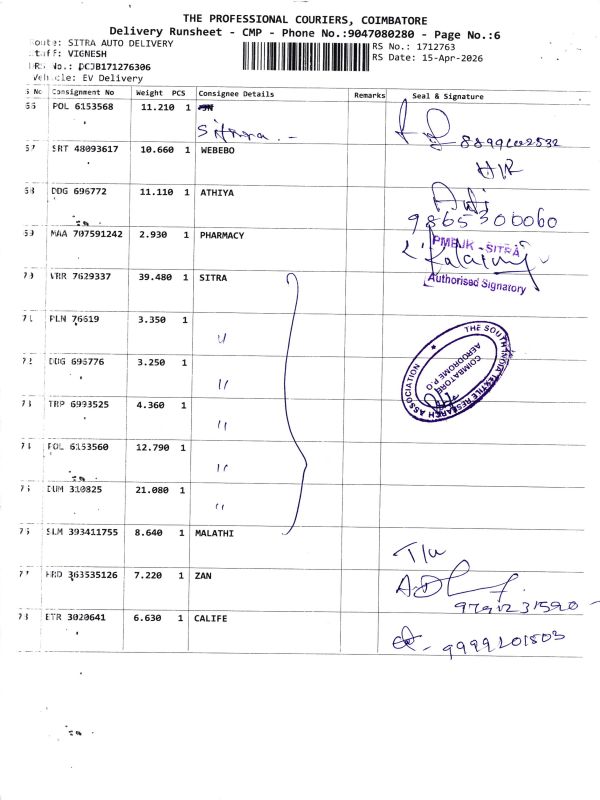 THE PROFESSIONAL COURIERS, COIMBATORE
Delivery Runsheet - CMP - Phone No.:9047080280 - Page No.:6
Route: SITRA AUTO DELIVERY
Staff: VIGNESH
DRS No.: DCJB171276306
Vehicle: EV Delivery
RS No.: 1712763
RS Date: 15-Apr-2026
S No Consignment No Weight PCS Consignee Details Remarks Seal & Signature
66 POL 6153568 11.210 1
Sitra
8899602532
67 SRT 48093617 10.660 1 WEBEBO
68 DDG 696772 11.110 1 ATHIYA
9865300060
69 MAA 707591242 2.930 1 PHARMACY
PMBJK - SITRA
Authorised Signatory
70 VRR 7629337 39.480 1 SITRA
71 PLN 76619 3.350 1 "
72 DDG 695776 3.250 1 "
THE SOUTH INDIA TEXTILE RESEARCH ASSOCIATION
COIMBATORE
AERODROME P.O
73 TRP 6993525 4.360 1 "
74 POL 6153560 12.790 1 "
75 DUM 310825 21.080 1 "
76 SLM 393411755 8.640 1 MALATHI
77 HRD 363535126 7.220 1 ZAN
9791231590
78 ETR 3020641 6.630 1 CALIFE
9999201503